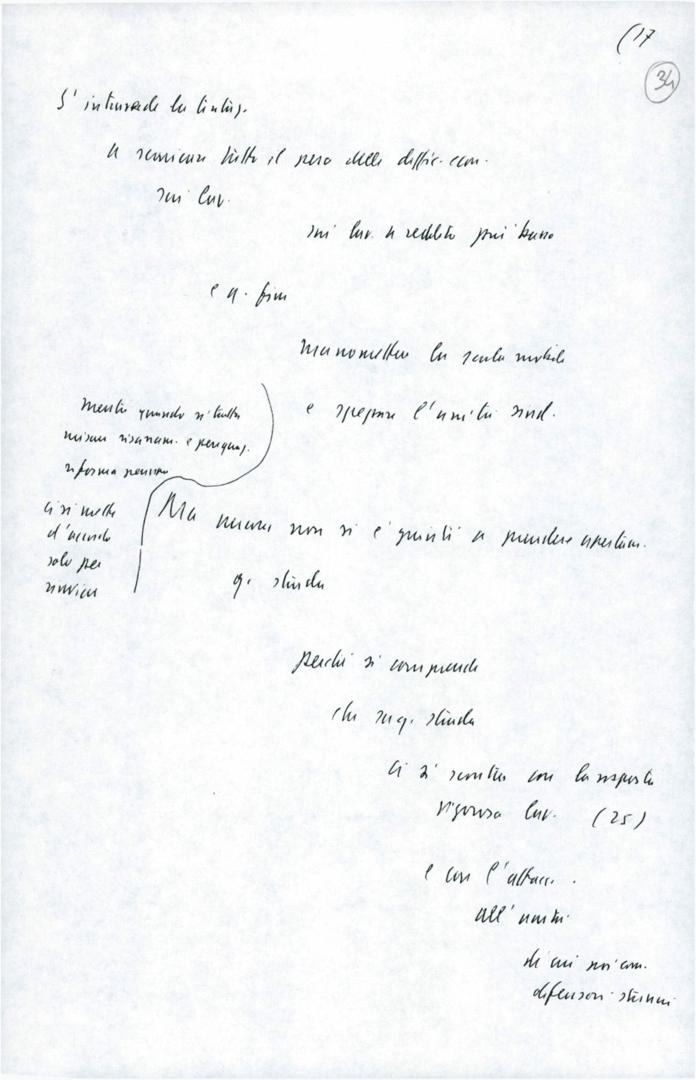 (17
34
S' intravede la tentaz.
a scaricare tutto il peso delle diffic. econ.
sui lav.
sui lav. a reddito più basso
e a. fini
manomettere la scala mobile
e spezzare l'unità sind.
mentre quando si tratta
misure risanam. e perequaz.
riforma pensioni
ci si mette
d'accordo
solo per
rinviare
Ma ancora non si è giunti a prendere apertam.
q. strada
perché si comprende
che su q. strada
ci si scontra con la risposta
rigorosa lav. (25)
e con l'attacc.
all'unità
di cui noi com.
difensori strenui